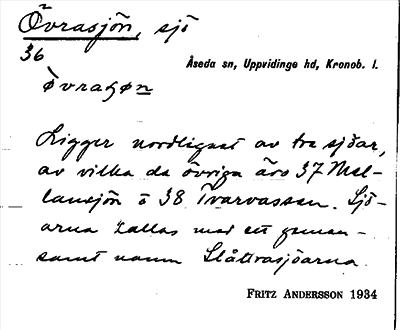 Övrasjön, sjö
36
Åseda sn, Uppvidinge hd, Kronob. l.
Ligger nordligast av tre sjöar,
av vilka de övriga äro 37 Mel-
lansjön o 38 Tvarvassen. Sjö-
arna kallas med ett gemen-
samt namn Slåttrasjöarna.
FRITZ ANDERSSON 1934